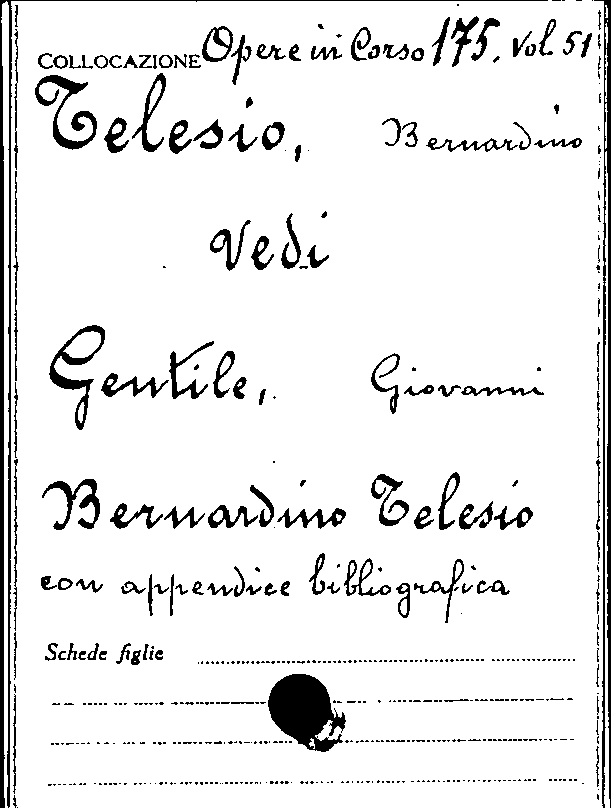 COLLOCAZIONE Opere in Corso 175. Vol. 51
Telesio, Bernardino
Vedi
Gentile, Giovanni
Bernardino Telesio
con appendice bibliografica
Schede figlie